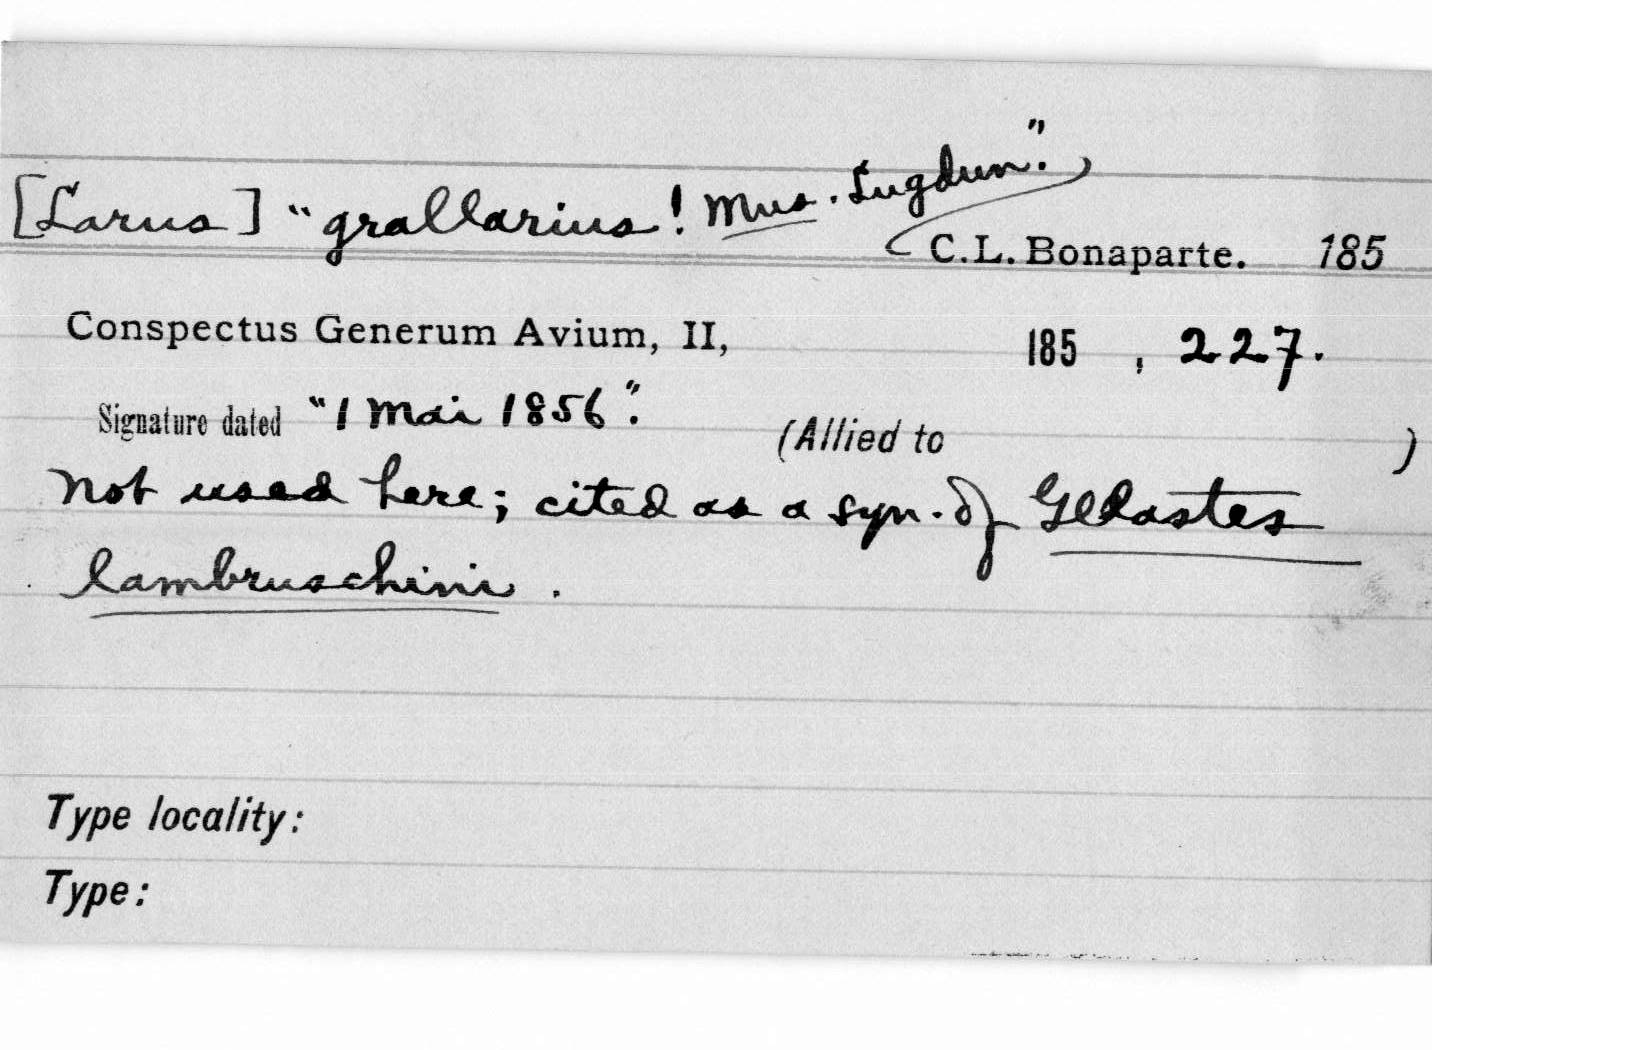 [Larus] "grallarius! Mus. Lugdun."
C.L. Bonaparte. 185
Conspectus Generum Avium, II, 185 , 227.
Signature dated "1 Mai 1856".
(Allied to )
not used here; cited as a syn. of Gelastes
lambruschini.
Type locality:
Type: